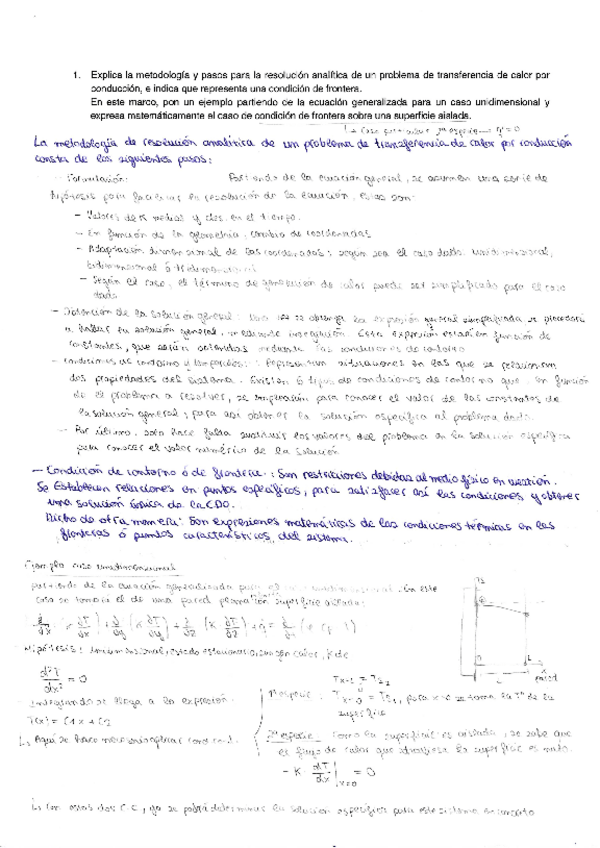 1. Explica la metodología y pasos para la resolución analítica de un problema de transferencia de calor por
conducción, e indica que representa una condición de frontera.
En este marco, pon un ejemplo partiendo de la ecuación generalizada para un caso unidimensional y
expresa matemáticamente el caso de condición de frontera sobre una superficie aislada.
= 0
La metodología de resolución analítica de un problema de transferencia de calor por conducción
consta de los siguientes pasos:
Formulación: Partiendo de la ecuación general, se asumen una serie de
hipótesis para facilitar la resolución de la ecuación, estas son:
- Valores de K medial y ctes. en el tiempo.
- En función de la geometría, cambio de coordenadas
- Adaptación dimensional de las coordenadas: según sea el caso dado. unidimensional,
bidimensional ó tridimensional
- Según el caso, el término de generación de calor puede ser simplificado para el caso
dado
- Obtención de la solución general: Una vez se obtenga la expresión general simplificada se procederá
a hallar su solución general, mediante integración. Esta expresión estará en función de
constantes, que serán obtenidas mediante las condiciones de contorno
- Condiciones de contorno y : Representan situaciones en las que se relacionan
dos propiedades del sistema. Existen tipos de condiciones de contorno que en función
de el problema a resolver, se emplearán para conocer el valor de las constantes de
la solución general; para así obtener la solución específica al problema dado.
- Por último, solo hace falta sustituir los valores del problema en la solución específica
para conocer el valor numérico de la solución
- Condición de contorno ó de frontera: Son restricciones debidas al medio físico en cuestión.
Se establecen relaciones en puntos específicos, para satisfacer así las condiciones y obtener
una solución única de la EDO.
Dicho de otra manera: Son expresiones matemáticas de las condiciones térmicas en las
fronteras ó puntos característicos del sistema.
Ejemplo caso unidimensional
partiendo de la ecuación generalizada para el unidimensional. En este
caso se tomará el de una pared plana con superficie aislada:
Hipótesis: Unidimensional, estado estacionario, sin gen calor, K cte
d²T/dx² = 0
Integrando se llega a la expresión.
T(x) = C1 x + C2
Aquí se hace necesario aplicar cond. cont.
1ª especie: para x=0 se toma la Tª de la
superficie
2ª especie Como la superficie es aislada, se sabe que
el flujo de calor que atraviesa la superficie es nulo.
- K dT/dx |x=0 = 0
Con estas dos C.C, ya se podrá determinar la solución específica para este sistema en concreto